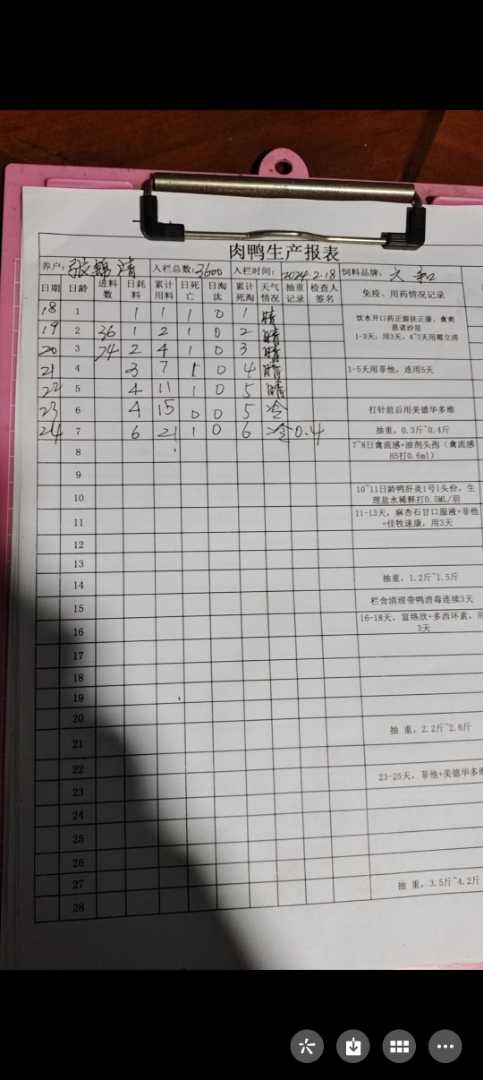 肉鸭生产报表
养户: 张锦清 入栏总数: 3600 入栏时间: 2024.2.18 饲料品牌:
日期 日龄 进料数 日耗料 累计用料 日死亡 日淘汰 累计死淘 天气情况 抽重记录 检查人签名 免疫、用药情况记录
18 1 1 1 1 0 1 晴 饮水开口药正源扶正康，禽爽
19 2 36 1 2 1 0 2 晴
20 3 74 2 4 1 0 3 晴 1-3天；用3天，
21 4 3 7 1 0 4 晴 1-5天用菲他，连用5天
22 5 4 11 1 0 5 晴
23 6 4 15 0 0 5 冷 打针前后用美德华多维
24 7 6 21 1 0 6 冷 0.4 抽重，0.3斤~0.4斤
8 7~8日禽流感+浆剂头孢（禽流感H5打0.6ml）
9
10 10~11日龄鸭肝炎1号1头份，生理盐水稀释打0.5ML/羽
11 11-13天，麻杏石甘口服液+菲他+佳牧速康，用3天
12
13
14 抽重，1.2斤~1.5斤
15 栏舍清理带鸭消毒连续3天
16 16-18天，富络欣+多西环素，用3天
17
18
19
20
21 抽 重，2.2斤~2.6斤
22
23 23-25天，菲他+美德华多维
24
25
26
27 抽 重，3.5斤~4.2斤
28